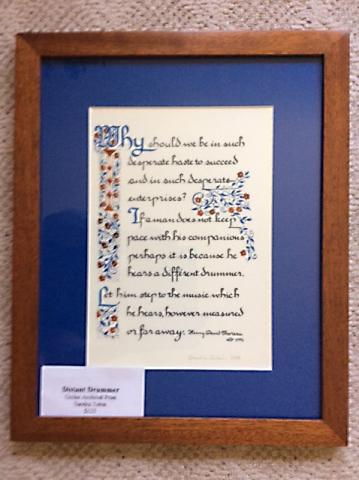 Why should we be in such
desperate haste to succeed
and in such desperate
enterprises?
If a man does not keep
pace with his companions
perhaps it is because he
hears a different drummer.
Let him step to the music which
he hears, however measured
or far away. Henry David Thoreau
Distant Drummer
Archival Print